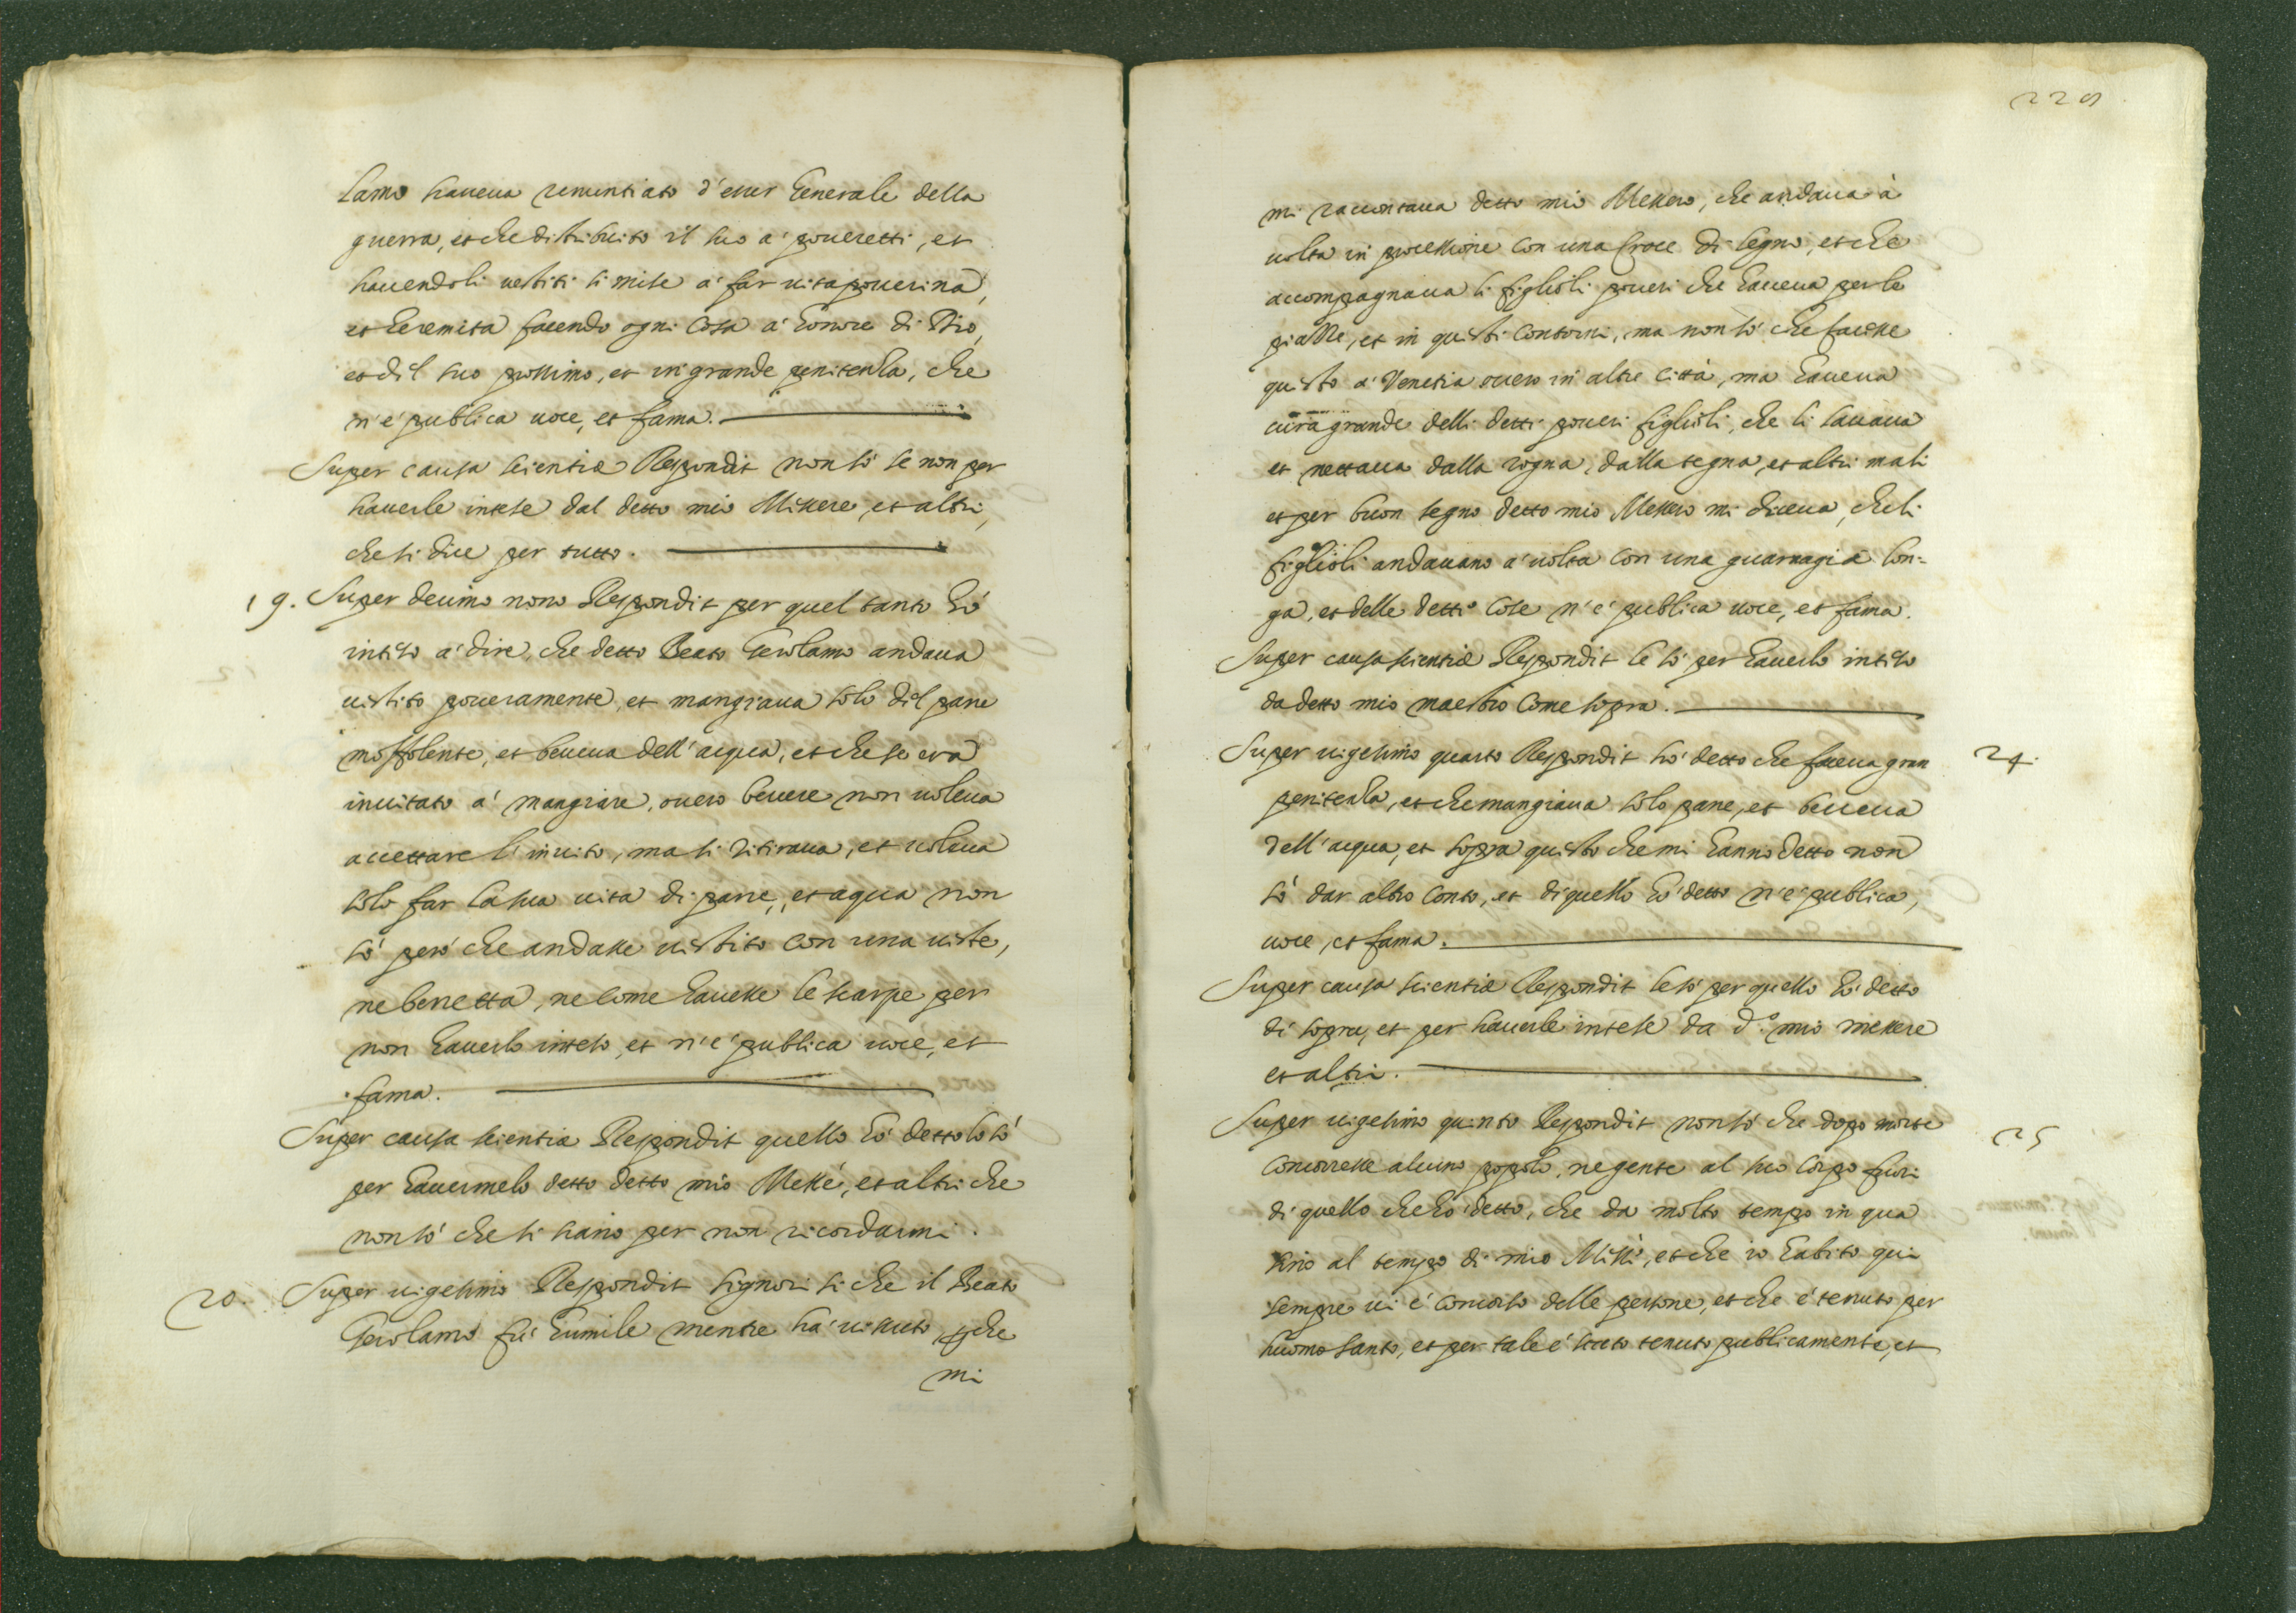 lamo haueua renuntiato d'esser Generale della
guerra, et che distribuito il suo a' poueretti, et
hauendoli uestiti si mise a' far uita pouerina,
et heremita facendo ogni cosa a' honore di Dio,
et dil suo prossimo, et in grande penitenza, che
n'e' publica uoce, et fama.
Super causa scientiæ Respondit non sò se non per
hauerle intese dal detto mio Missere, et altri,
che si dice per tutto.
19. Super decimo nono Respondit per quel tanto hò
inteso a' dire, che detto Beato Gerolamo andaua
uestito poueramente, et mangiaua solo dil pane
moffolente, et beueua dell'acqua, et che se era
inuitato a' mangiare, ouero beuere non uoleua
accettare l'inuito, ma si ritiraua, et uoleua
solo far la sua uita di pane, et aqua non
sò però che andasse uestito con una ueste,
ne berretta, ne come hauesse le scarpe per
non hauerlo inteso, et n'e' publica uoce, et
fama.
Super causa scientia Respondit quello hò detto lo sò
per hauermelo detto detto mio Messe', et altri che
non sò che si siano per non ricordarmi.
20. Super uigesimo Respondit signori si che il Beato
Gerolamo fù humile mentre ha' uissuto, et che
mi
229
mi raccontaua detto mio Messero, che andaua à
uolta in processione con una Croce di legno, et che
accompagnaua li figlioli poueri che haueua per le
piazze, et in questi contorni, ma non sò che facesse
questo a' Venetia ouero in altre città, ma haueua
cura grande delli detti poueri figlioli, che li lauaua
et nettaua dalla rogna, dalla tegna, et altri mali
et per buon segno detto mio Messero mi diceua, che li
figlioli andauano a' uolta con una guarnagia lon-
ga, et delle detti cose n'e' publica uoce, et fama.
Super causa scientiæ Respondit le sò per hauerlo inteso
da detto mio maestro come sopra.
Super uigesimo quarto Respondit hò detto che faceua gran 24.
penitenza, et che mangiaua solo pane, et beueua
dell'acqua, et sopra questo che mi hanno detto non
sò dar altro conto, et di quello hò detto n'e' publica,
uoce, et fama.
Super causa scientiæ Respondit le sò per quello hò detto
di sopra, et per hauerle intese da d.º mio messere
et altri.
Super uigesimo quinto Respondit non sò che dopo morte 25
concorresse alcuno popolo, ne gente al suo corpo fuori
di quello che hò detto, che da molto tempo in qua
sino al tempo di mio Missè, et che io habito qui
sempre ui e' concorso delle persone, et che e' tenuto per
huomo santo, et per tale e' stato tenuto publicamente, et